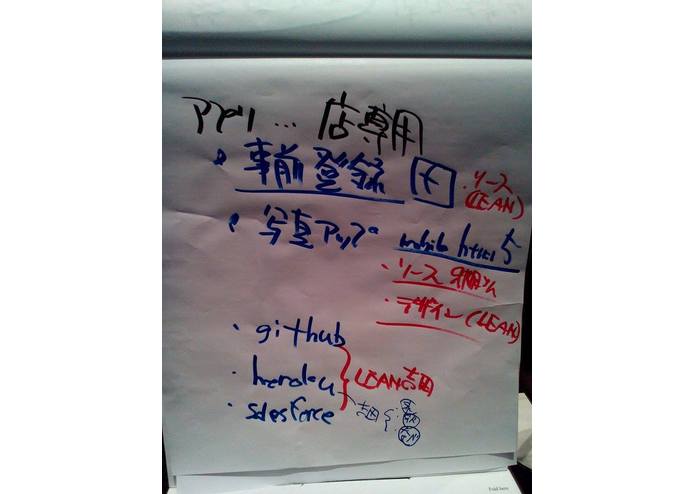 アプリ... 店専用
・事前登録 f ・ソース (LEAN)
・写真アップ mobile html5
・ソース
・デザイン (LEAN)
・github
・heroku LEAN吉田
・salesforce 吉田